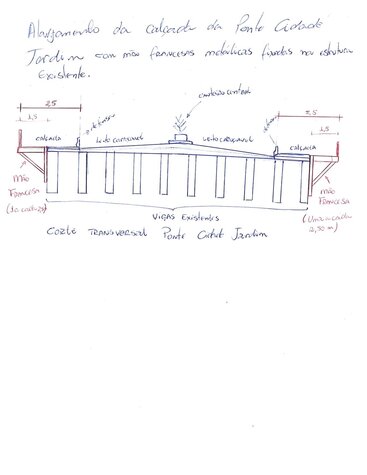 Alargamento da calçada da Ponte Cidade
Jardim com mão francesas metálicas fixadas na estrutura
Existente.
2,5
1,5
calçada
Leito carroçavel
canteiro central
Leito carroçavel
calçada
2,5
1,5
Mão
Francesa
Mão
Francesa
(Uma a cada
2,50 m)
Vigas Existentes
Corte Transversal Ponte Cidade Jardim